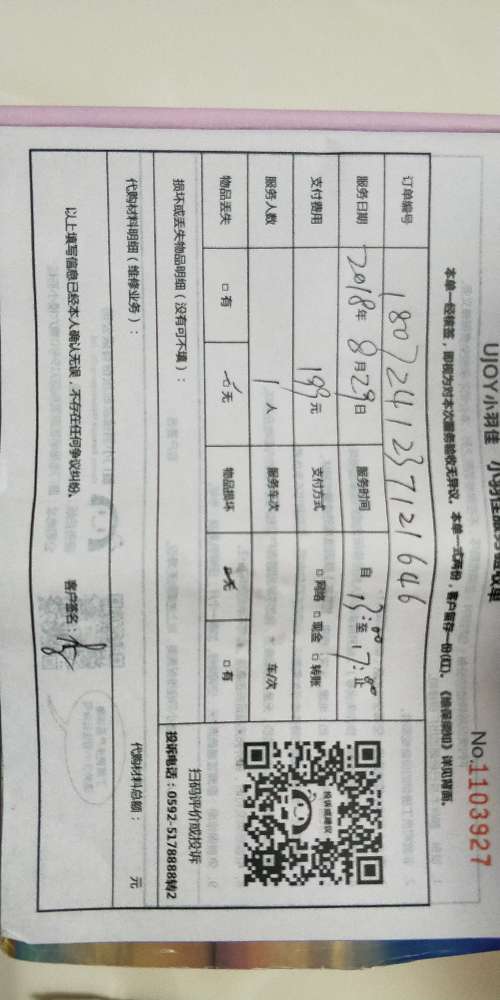 UJOY小羽佳 小羽佳服务验收单
No.1103927
本单一经核签，即视为对本次服务验收无异议。本单一式两份，客户留存一份(红)。《担保须知》详见背面。
订单编号 1807241237121646
服务日期 2018年8月29日 服务时间 自13:00至17:00止
支付费用 199元 支付方式 □网络 □现金 □转账
服务人数 1人 服务车次 车/次
物品丢失 □有 ☑无 物品损坏 ☑无 □有
损坏或丢失物品明细（没有可不填）：
投诉或建议
扫码评价或投诉
投诉电话：0592-5178888转2
代购材料明细（维修业务）： 代购材料总额： 元
以上填写信息已经本人确认无误，不存在任何争议纠纷。 客户签名：